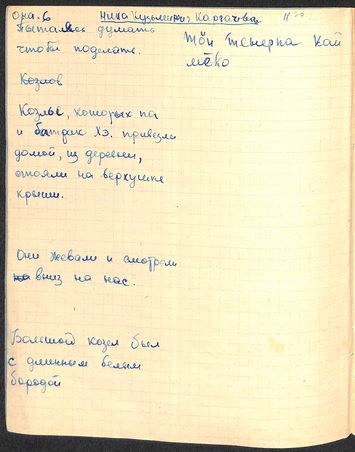 Она. 6 Нина Кузьминична Карпачева 11
пыталась думать
чтобы поделать.
Твои
Козлов
Козлы, которых па
и батрак Хэ. привезли
домой, из деревни,
стояли на верхушке
крыши.
Они жевали и смотрели
вниз на нас.
Большой козел был
с длинным белым
бородой